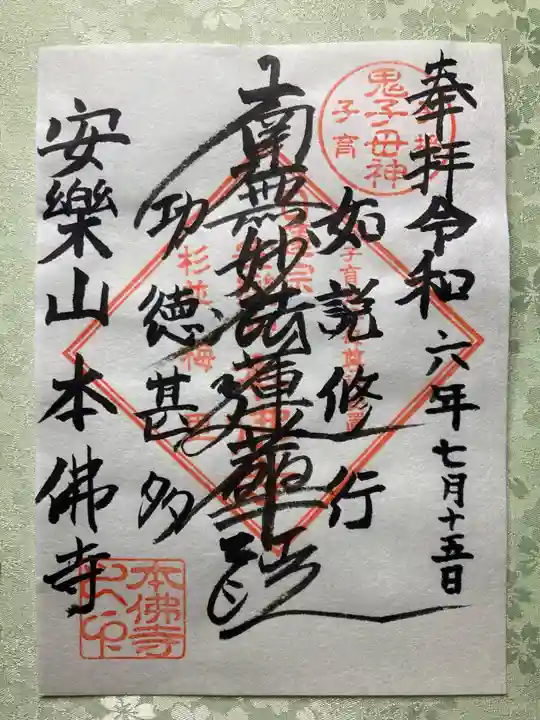 奉拝令和六年七月十五日
如説修行
南無妙法蓮華経
功徳甚多
安樂山本佛寺
鬼子母神
子育
本佛寺